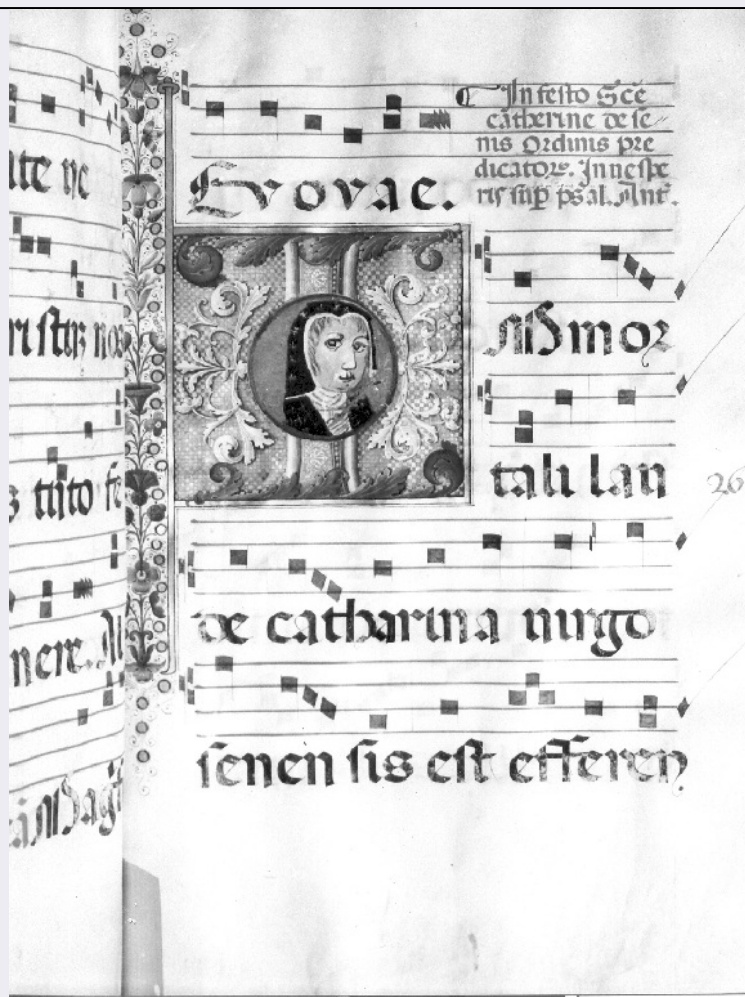 ate ne
ri stus nos
tuto fe
nere. Al
Mag
In festo Scē
catherine de se
nis Ordinis pre
dicatoꝝ. In uespe
ris sup̄ ps̄al. An̄t.
Evovae.
Immor
tali lau
26
de catharina uirgo
senen sis est efferen